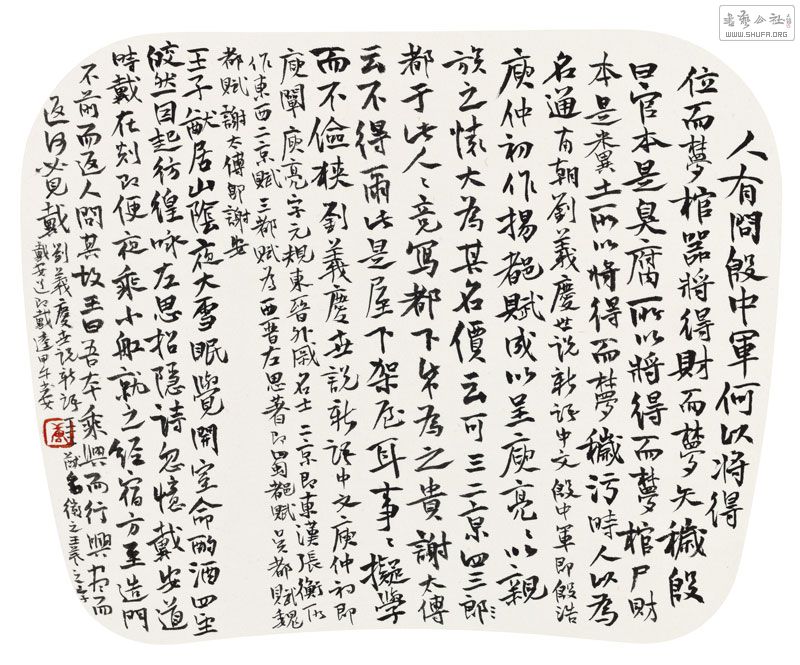 人有問殷中軍何以將得
位而夢棺器將得財而夢矢穢殷
曰官本是臭腐所以將得而夢棺尸財
本是糞土所以將得而夢穢污時人以為
名通有朝劉義慶世說新語中文殷中軍即殷浩
庾仲初作揚都賦成以呈庾亮亮以親
族之懷大為其名價云可三二京四三都
都于此人人競寫都下紙為之貴謝太傅
云不得爾此是屋下架屋耳事事擬學
而不儉狹劉義慶世說新語中文庾仲初即
庾闡庾亮字元規東晉外戚名士二京即東漢張衡所
作東西二京賦三都賦為西晉左思著即蜀都賦吳都賦魏
都賦謝太傅即謝安
王子猷居山陰夜大雪眠覺開室命酌酒四望
皎然因起彷徨咏左思招隱詩忽憶戴安道
時戴在剡即便夜乘小船就之經宿方至造門
不前而返人問其故王曰吾本乘興而行興盡而
返何必見戴劉義慶世說新語王子猷名徽之王羲之子
戴安道即戴逵甲午
書藝公社
WWW.SHUFA.ORG